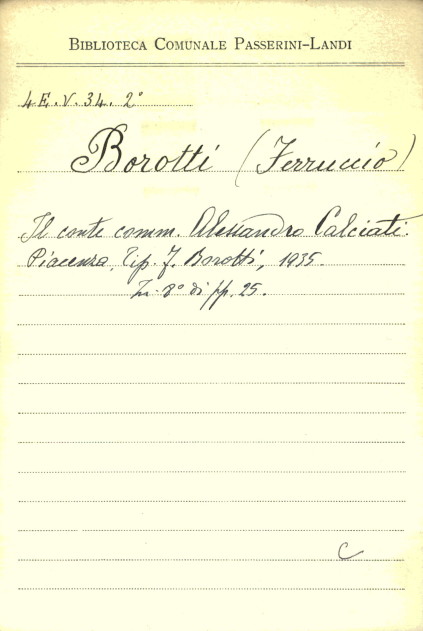 BIBLIOTECA COMUNALE PASSERINI-LANDI
4E.V.34.2°
Borotti (Ferruccio)
Il conte comm. Alessandro Calciati.
Piacenza, Tip. F. Borotti, 1935
In-8° di pp. 25.
C